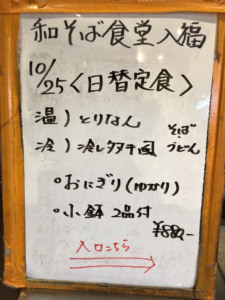 和そば食堂入福
10/25<日替定食>
温)とりなん そば
冷)冷しタヌキ風 うどん
○おにぎり(ゆかり)
○小鉢2品付
¥880-
入口こちら